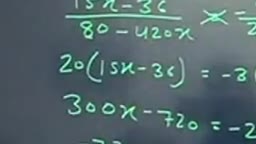 15x-36
80-420x
20(15x-36) = -3
300x-720 = -2